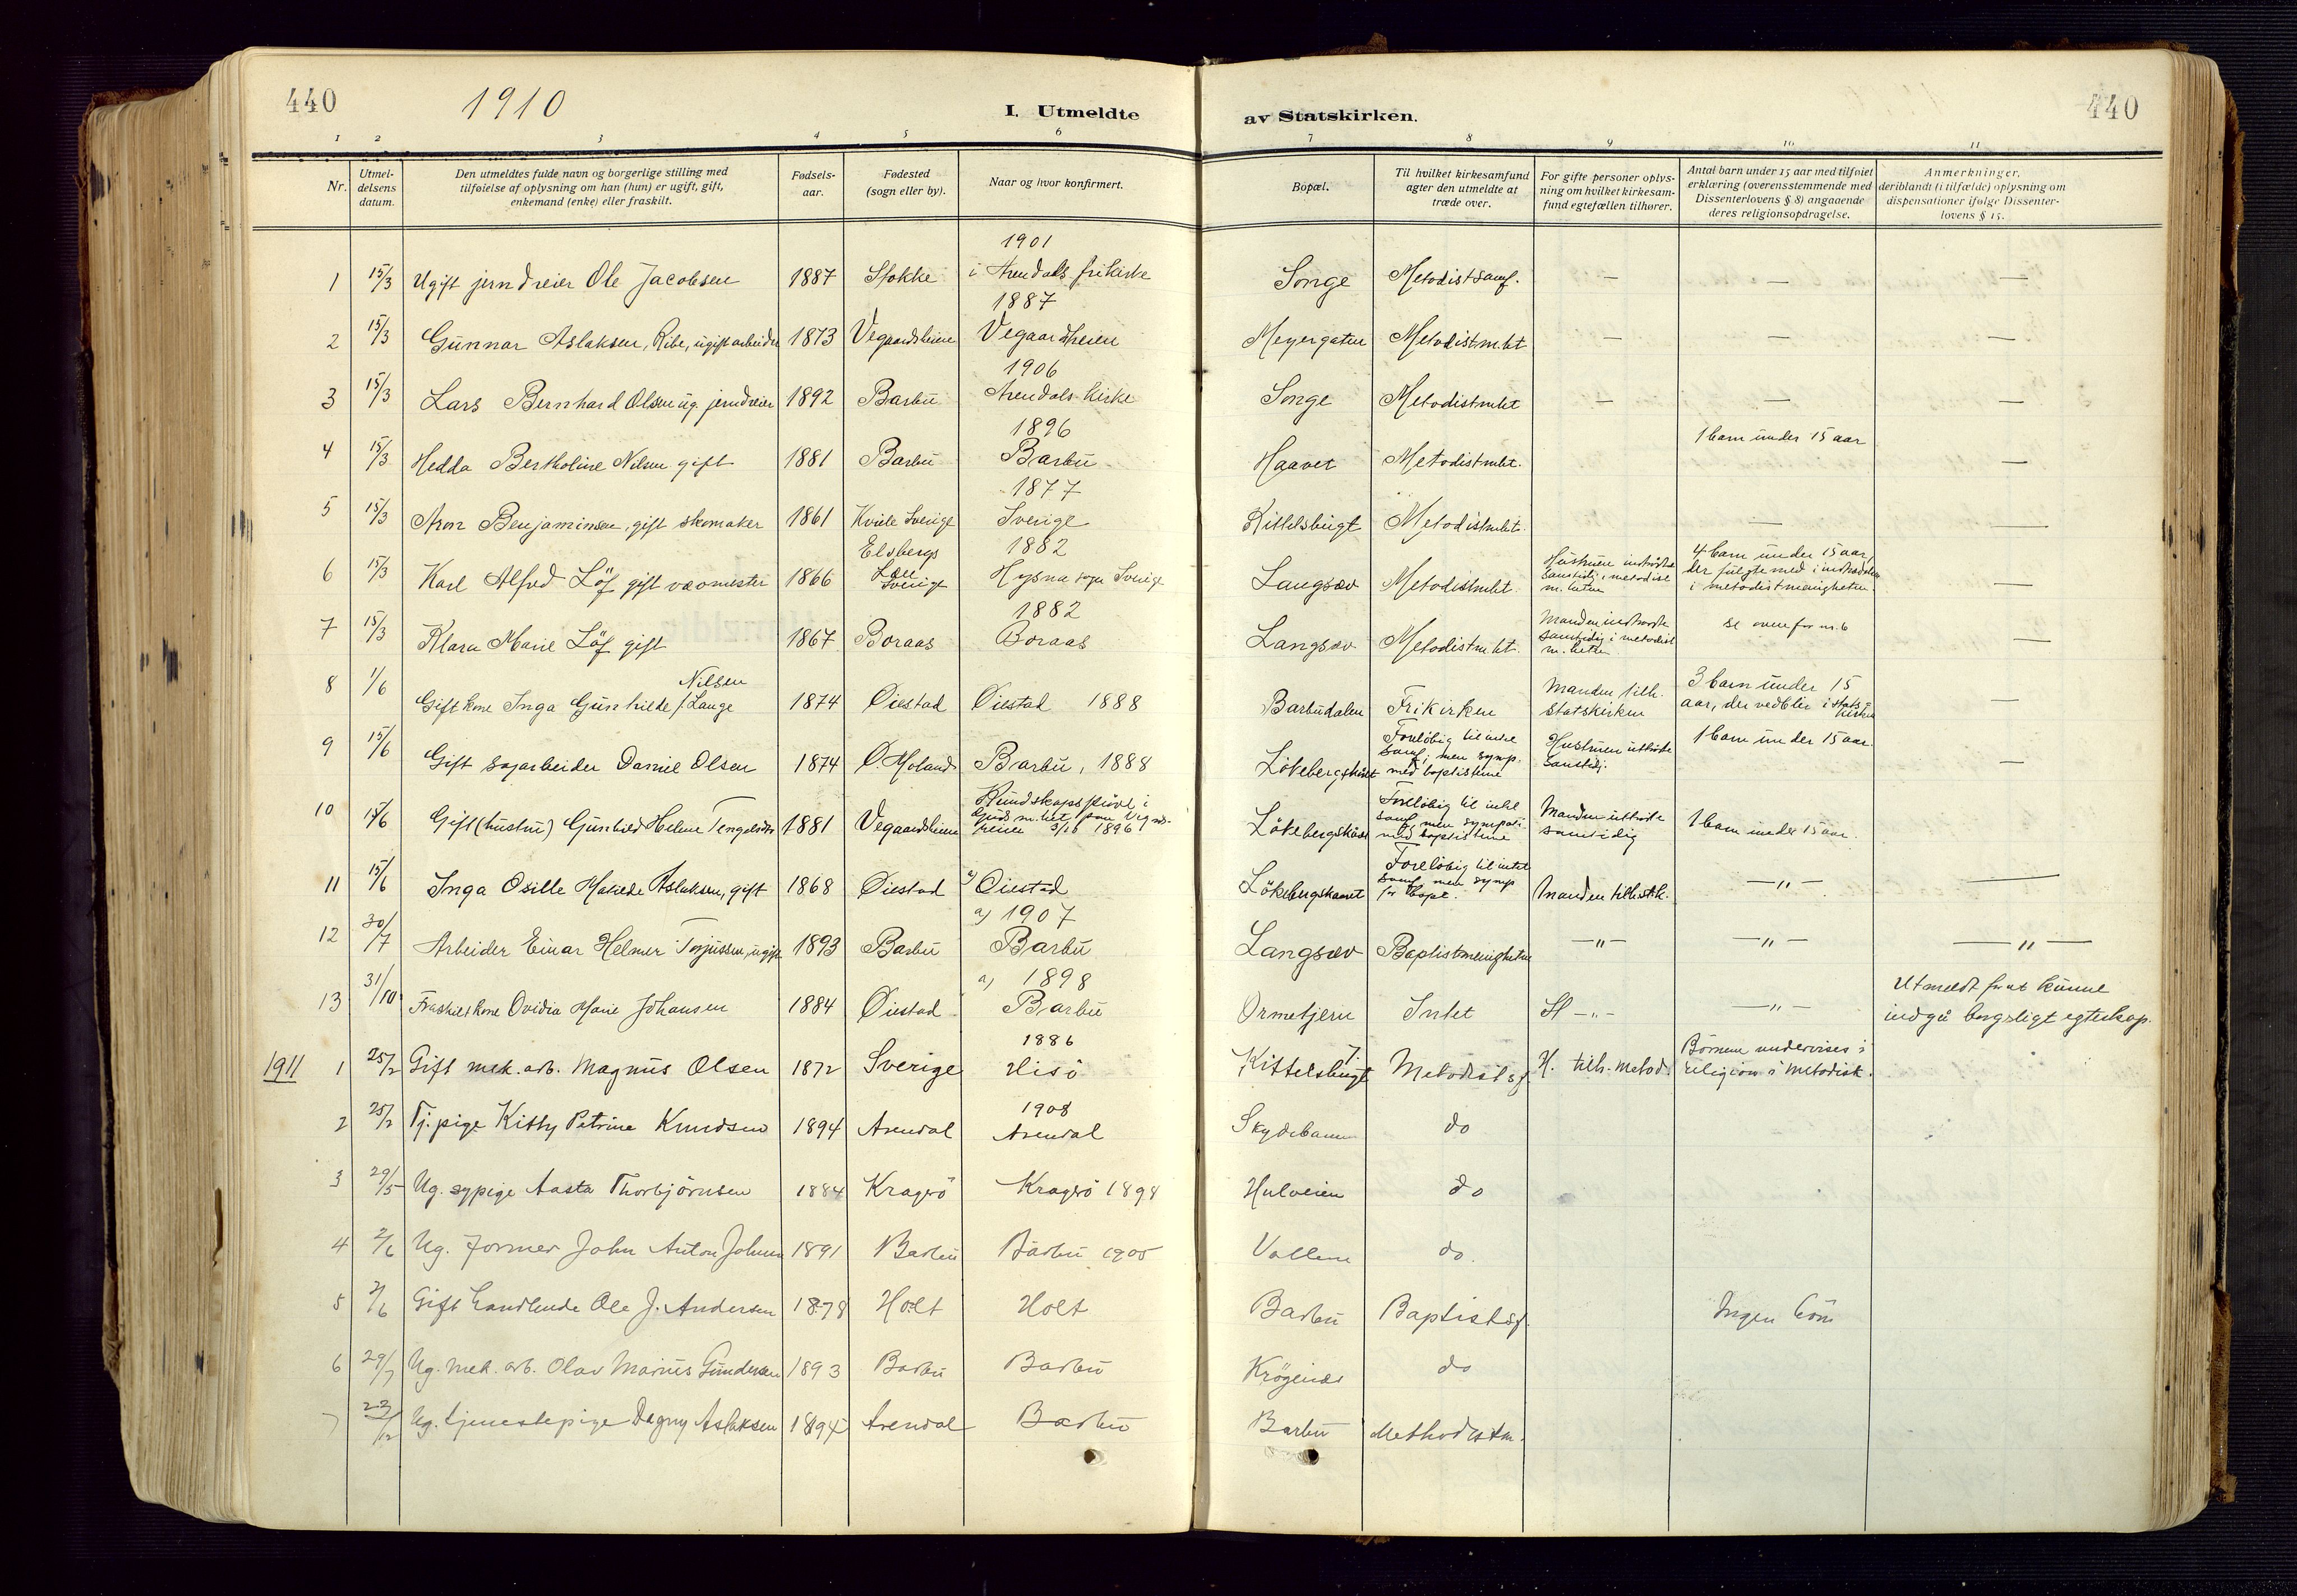 440 1910 I. Utmeldte av Statskirken. 440
1 2 3 4 5 6 7 8 9 10 11
Nr. | Utmeldelsens datum. | Den utmeldtes fulde navn og borgerlige stilling med tilføielse af oplysning om han (hun) er ugift, gift, enkemand (enke) eller fraskilt. | Fødselsaar. | Fødested (sogn eller by). | Naar og hvor konfirmert. | Bopæl. | Til hvilket kirkesamfund agter den utmeldte at træde over. | For gifte personer oplysning om hvilket kirkesamfund egtefællen tilhører. | Antal barn under 15 aar med tilføiet erklæring (overensstemmende med Dissenterlovens § 8) angaaende deres religionsopdragelse. | Anmerkninger, deriblandt (i tilfælde) oplysning om dispensationer ifølge Dissenterlovens § 15.
1 15/3 Ugift jerndreier Ole Jacobsen 1887 Stokke 1901 i Arendals frikirke Songe Metodistsamf. — — —
2 15/3 Gunnar Aslaksen, Ribe, ugift arbeider 1873 Vegaardsheien 1887 Vegaardsheien Meyergaten Metodistm.het — — —
3 15/3 Lars Bernhard Olsen ug. jerndreier 1892 Barbu 1906 Arendals Kirke Songe Metodistm.het — — —
4 15/3 Hedda Bertholine Nilsen gift 1881 Barbu 1896 Barbu Haavet Metodistm.het. 1 barn under 15 aar —
5 15/3 Aron Benjaminsen, gift skomaker 1861 Sverige 1877 Sverige Kittelsbugt Metodistm.het. — —
6 15/3 Karl Alfred Löf gift 1866 Elvbergs Sverige 1882 Hysna sogn Sverige Langsæv Metodistm.het. Hustruen indtrådte samtidig i metodist m.heten 4 barn under 15 aar, der fulgte med i i metodistmenigheten. —
7 15/3 Klara Marie Löf gift 1867 Boraas 1882 Boraas Langsæv Metodistm.het. Manden indtraadte samtidig i metodist m.heten se ovenfor nr. 6 —
8 1/6 Gift kone Inga Gunhilde Nilsen / Lange 1874 Øiestad Øiestad 1888 Barbudalen Frikirken Manden tilh. Statskirken 3 barn under 15 aar, der vedblir i statskirken —
9 15/6 Gift sagarbeider Daniel Olsen 1874 Ø. Moland Barbu, 1888 Lökebergskåret Foreløbig til intet samf., men symp. med baptisterne Hustruen uttrådte samtidig. 1 barn under 15 aar. —
10 15/6 Gift (hustru) Gunhild Helene Tengelsdtr 1881 Vegaardsheien Kundskapsprøve i 1896 Lökebergskåret Foreløbig til intet samf., men sympati med baptisterne Manden uttrådte samtidig 1 barn under 15 aar.
11 15/6 Inga Osille Aslaksen, gift 1868 Øiestad Øiestad Lökebergskaaret Foreløbig til intet samf. men symp for bapt. Manden tilh. stk. — " — —
12 30/7 Arbeider Einar Helmer Torjussen, ugift 1893 Barbu a) 1907 Barbu Langsæv Baptistmenigheten — " — — " — — " —
13 31/10 Fraskilt kone Ovidia Marie Johansen 1884 Øiestad a) 1898 Barbu Ormetjern Intet St — " — — " — Utmeldt for at kunne indgå borgerligt egteskap.
1911 1 25/2 Gift mek. arb. Magnus Olsen 1872 Sverige 1886 Hisö Kittelsbugt Metodistsf H. tilh. metod. Börnene undervises i religion i metodisk.
2 25/2 Tj.pige Kitty Petrine Knudsen 1894 Arendal 1908 Arendal Skydebanen do
3 29/5 Ug. sypige Aasta Thorbjörnsen 1884 Kragerö Kragerö 1898 Hulveien do
4 2/6 Ug. former John Anton Johnsen 1891 Barbu Barbu 1905 Vollene do.
5 2/6 Gift handlende Ole J. Andersen 1878 Holt Holt Barbu Baptistsf. Ingen börn
6 29/7 Ug. mek. arb. Olav Marius Gundersen 1893 Barbu Barbu Krögenes do
7 23/12 Ug. tjenestepige Dagny Aslaksen 1894 Arendal Barbu Barbu Methodistm.